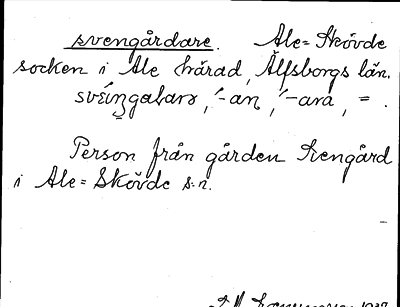 svengårdare. Ale=Skövde
socken i Ale härad, Älfsborgs län.
-an, -ara, = .
Person från gården Svengård
i Ale=Skövde s:n.